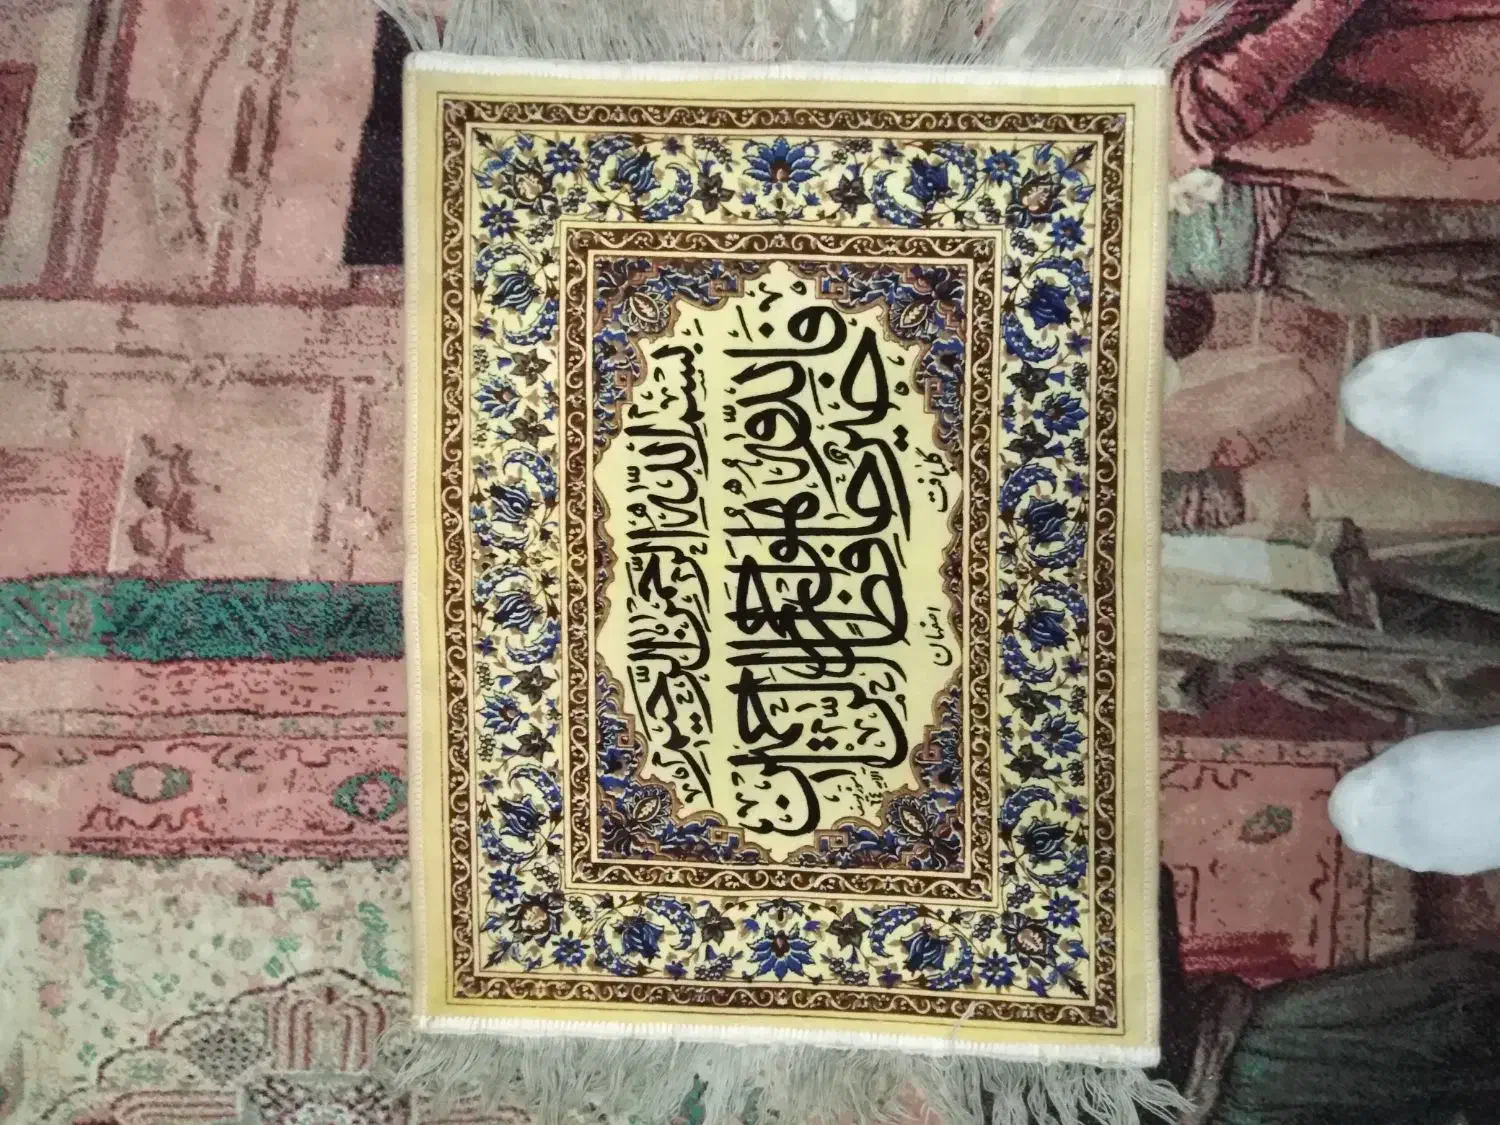 بِسْمِ اللهِ الرَّحْمٰنِ الرَّحِيمِ
فَاللهُ خَيْرٌ حَافِظًا وَهُوَ أَرْحَمُ الرَّاحِمِينَ
گلبافت اصفهان